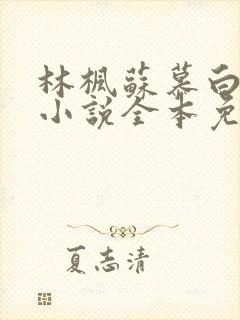 林楓蘇慕白
小說全本免
夏志清